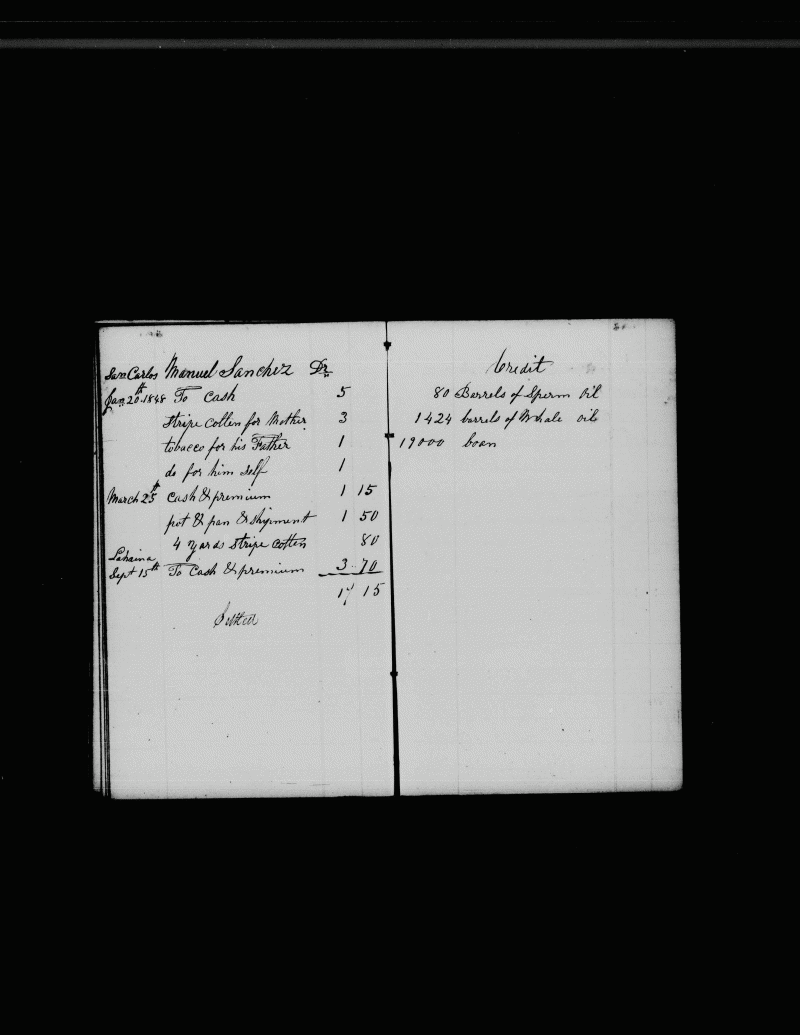 San Carlos Manuel Sanchez Dr
Jan 20th 1848 To Cash 5
Stripe cotten for Mother 3
tobacco for his Father 1
do for him self 1
March 25th Cash & premium 1 15
pot & pan & shipment 1 50
4 yards stripe cotten 80
Lahaina
Sept 15th To Cash & premium 3 70
17 15
Settled
Credit
80 Barrels of Sperm Oil
1424 barrels of Whale oil
19000 boan